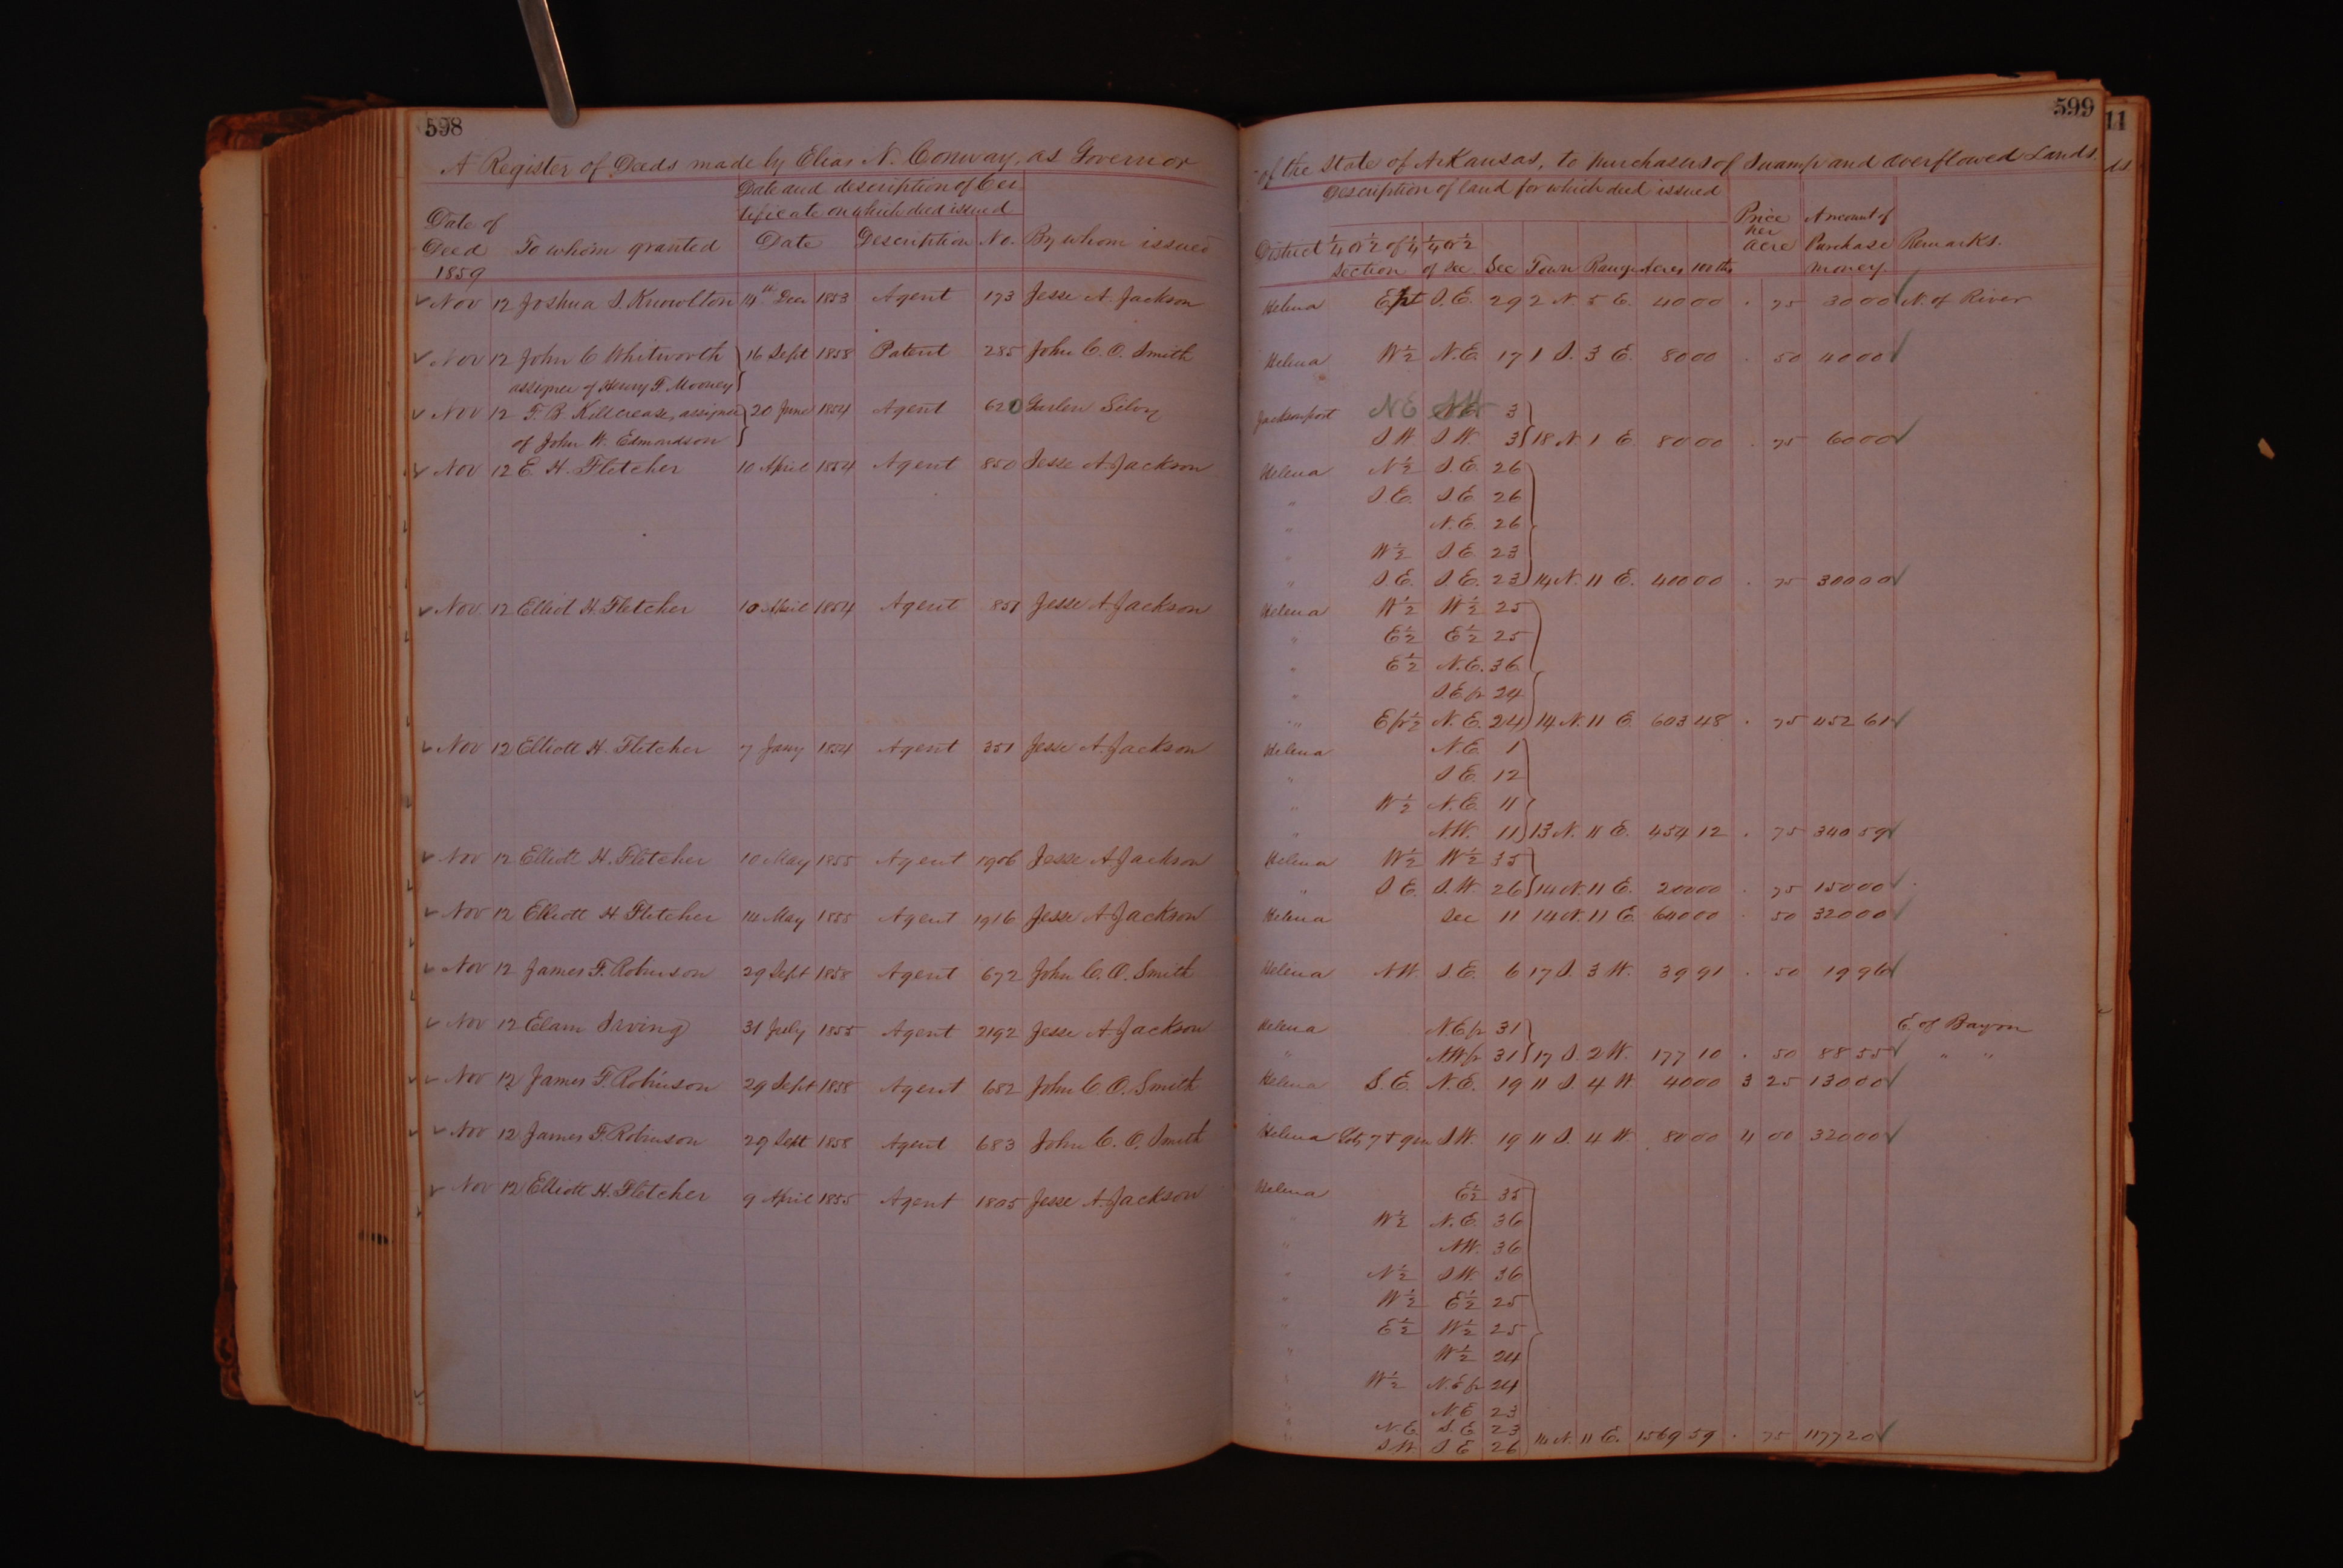 598
A Register of Deeds made by Elias N. Conway, as Governor
Date and description of Cer
tificate on which deed issued
Date of
Deed To whom granted Date Description No. By whom issued
1859
Nov 12 Joshua S. Knowlton 14th Decr 1853 Agent 173 Jesse A. Jackson
Nov 12 John C Whitworth 16 Sept 1858 Patent 285 John C. O. Smith
assignee of Henry F. Mooney
Nov 12 F. B. Killcrease, assignee 20 June 1854 Agent 620
of John W. Edmondson
Nov 12 E. H. Fletcher 10 April 1854 Agent 850 Jesse A. Jackson
Nov 12 Elliot H. Fletcher 10 April 1854 Agent 851 Jesse A. Jackson
Nov 12 Elliott H. Fletcher 7 Jany 1854 Agent 351 Jesse A. Jackson
Nov 12 Elliott H. Fletcher 10 May 1855 Agent 1906 Jesse A Jackson
Nov 12 Elliott H. Fletcher 14 May 1855 Agent 1916 Jesse A. Jackson
Nov 12 James F. Robinson 29 Sept 1858 Agent 672 John C. O. Smith
Nov 12 Elam Irving 31 July 1855 Agent 2192 Jesse A Jackson
Nov 12 James F. Robinson 29 Sept 1858 Agent 682 John C. O. Smith
Nov 12 James F. Robinson 29 Sept 1858 Agent 683 John C. O. Smith
Nov 12 Elliott H. Fletcher 9 April 1855 Agent 1805 Jesse A. Jackson
599
11
of the State of Arkansas, to purchasers of Swamp and Overflowed Lands.
ds.
Description of land for which deed issued
Price per acre Amount of Purchase money. Remarks.
District 1/4 or 1/2 of 1/4 1/4 or 1/2
section of sec Sec Town Range Acres 100ths
Helena E pt S.E. 29 2 N. 5 E. 40 00 . 75 30 00 N. of River
Helena W 1/2 N.E. 17 1 S. 3 E. 80 00 . 50 40 00
Jacksonport NE 3
S.W. S.W. 3 18 N. 1 E. 80 00 . 75 60 00
Helena N 1/2 S.E. 26
" S.E. S.E. 26
" N.E. 26
" W 1/2 S.E. 23
" S.E. S.E. 23 14 N. 11 E. 400 00 . 75 300 00
Helena W 1/2 W 1/2 25
" E 1/2 E 1/2 25
" E 1/2 N.E. 36
" S.E fr 24
" E fr 1/2 N.E. 24 14 N. 11 E 603 48 . 75 452 61
Helena N.E. 1
" S.E. 12
" W 1/2 N.E. 11
" N.W. 11 13 N. 11 E. 454 12 . 75 340 59
Helena W 1/2 W 1/2 35
" S.E. S.W. 26 14 N. 11 E. 200 00 . 75 150 00
Helena Sec 11 14 N. 11 E. 640 00 . 50 320 00
Helena N.W. S.E. 6 17 S. 3 W. 39 91 . 50 19 96
Helena N.E fr 31 E. of Bayou
" N.W fr 31 17 S. 2 W. 177 10 . 50 88 55 " "
Helena S.E. N.E. 19 11 S. 4 W. 40 00 3 25 130 00
Helena Lots 7 & 9 in S.W. 19 11 S. 4 W. 80 00 4 00 320 00
Helena E 1/2 35
" W 1/2 N.E. 36
" N.W. 36
" N 1/2 S.W. 36
" W 1/2 E 1/2 25
" E 1/2 W 1/2 25
" W 1/2 24
" W 1/2 N.E fr 24
" N.E 23
" N.E. S.E 23
" S.W S.E 26 14 N. 11 E. 1569 59 . 75 1177 20